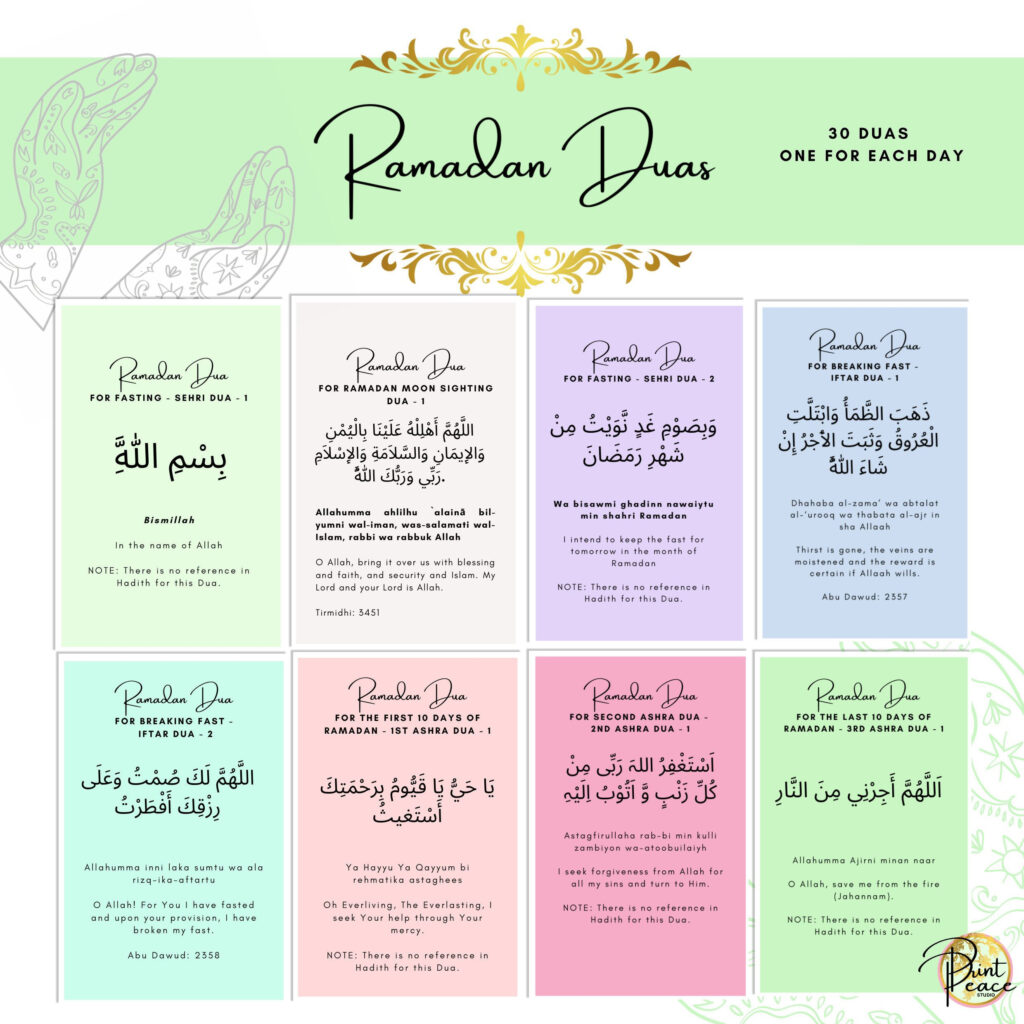 Ramadan Duas
30 DUAS
ONE FOR EACH DAY
Ramadan Dua
FOR FASTING - SEHRI DUA - 1
بِسْمِ اللَّهِ
Bismillah
In the name of Allah
NOTE: There is no reference in
Hadith for this Dua.
Ramadan Dua
FOR RAMADAN MOON SIGHTING
DUA - 1
اللَّهُمَّ أَهْلِلْهُ عَلَيْنَا بِالْيُمْنِ
وَالإِيمَانِ وَالسَّلاَمَةِ وَالإِسْلاَمِ
رَبِّي وَرَبُّكَ اللَّهُ.
Allahumma ahlilhu `alainā bil-
yumni wal-iman, was-salamati wal-
Islam, rabbi wa rabbuk Allah
O Allah, bring it over us with blessing
and faith, and security and Islam. My
Lord and your Lord is Allah.
Tirmidhi: 3451
Ramadan Dua
FOR FASTING - SEHRI DUA - 2
وَبِصَوْمِ غَدٍ نَّوَيْتُ مِنْ
شَهْرِ رَمَضَانَ
Wa bisawmi ghadinn nawaiytu
min shahri Ramadan
I intend to keep the fast for
tomorrow in the month of
Ramadan
NOTE: There is no reference in
Hadith for this Dua.
Ramadan Dua
FOR BREAKING FAST -
IFTAR DUA - 1
ذَهَبَ الظَّمَأُ وَابْتَلَّتِ
الْعُرُوقُ وَثَبَتَ الأَجْرُ إِنْ
شَاءَ اللَّهُ
Dhahaba al-zama’ wa abtalat
al-’urooq wa thabata al-ajr in
sha Allaah
Thirst is gone, the veins are
moistened and the reward is
certain if Allaah wills.
Abu Dawud: 2357
Ramadan Dua
FOR BREAKING FAST -
IFTAR DUA - 2
اللَّهُمَّ لَكَ صُمْتُ وَعَلَى
رِزْقِكَ أَفْطَرْتُ
Allahumma inni laka sumtu wa ala
rizq-ika-aftartu
O Allah! For You I have fasted
and upon your provision, I have
broken my fast.
Abu Dawud: 2358
Ramadan Dua
FOR THE FIRST 10 DAYS OF
RAMADAN - 1ST ASHRA DUA - 1
يَا حَيُّ يَا قَيُّومُ بِرَحْمَتِكَ
أَسْتَغيثُ
Ya Hayyu Ya Qayyum bi
rehmatika astaghees
Oh Everliving, The Everlasting, I
seek Your help through Your
mercy.
NOTE: There is no reference in
Hadith for this Dua.
Ramadan Dua
FOR SECOND ASHRA DUA -
2ND ASHRA DUA - 1
اَسْتَغْفِرُ اللهَ رَبِّى مِنْ
كُلِّ زَنْبٍ وَّ اَتُوْبُ اِلَيْهِ
Astagfirullaha rab-bi min kulli
zambiyon wa-atoobuilaiyh
I seek forgiveness from Allah for
all my sins and turn to Him.
NOTE: There is no reference in
Hadith for this Dua.
Ramadan Dua
FOR THE LAST 10 DAYS OF
RAMADAN - 3RD ASHRA DUA - 1
اَللَّهُمَّ أَجِرْنِي مِنَ النَّارِ
Allahumma Ajirni minan naar
O Allah, save me from the fire
(Jahannam).
NOTE: There is no reference in
Hadith for this Dua.
Print
Peace
STUDIO